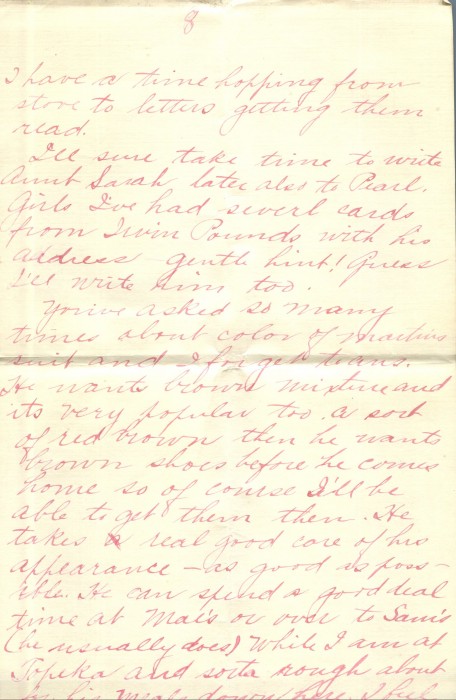 8
I have a time hopping from
stove to letters getting them
read.
I'll sure take time to write
Aunt Sarah later also to Pearl.
Girls I've had severl cards
from Irvin Pounds with his
address - gentle hint! Guess
I'll write him too.
You've asked so many
times about color of Martins
suit and I forget to ans.
He wants brown mixture and
its very popular too. a sort
of red brown then he wants
brown shoes before he comes
home so of course I'll be
able to get them then. He
takes a real good care of his
appearance - as good as poss-
ible. He can spend a good deal
time at Mai's or over to Sam's
(he usually does) While I am at
Topeka and sorta rough about
his meals down